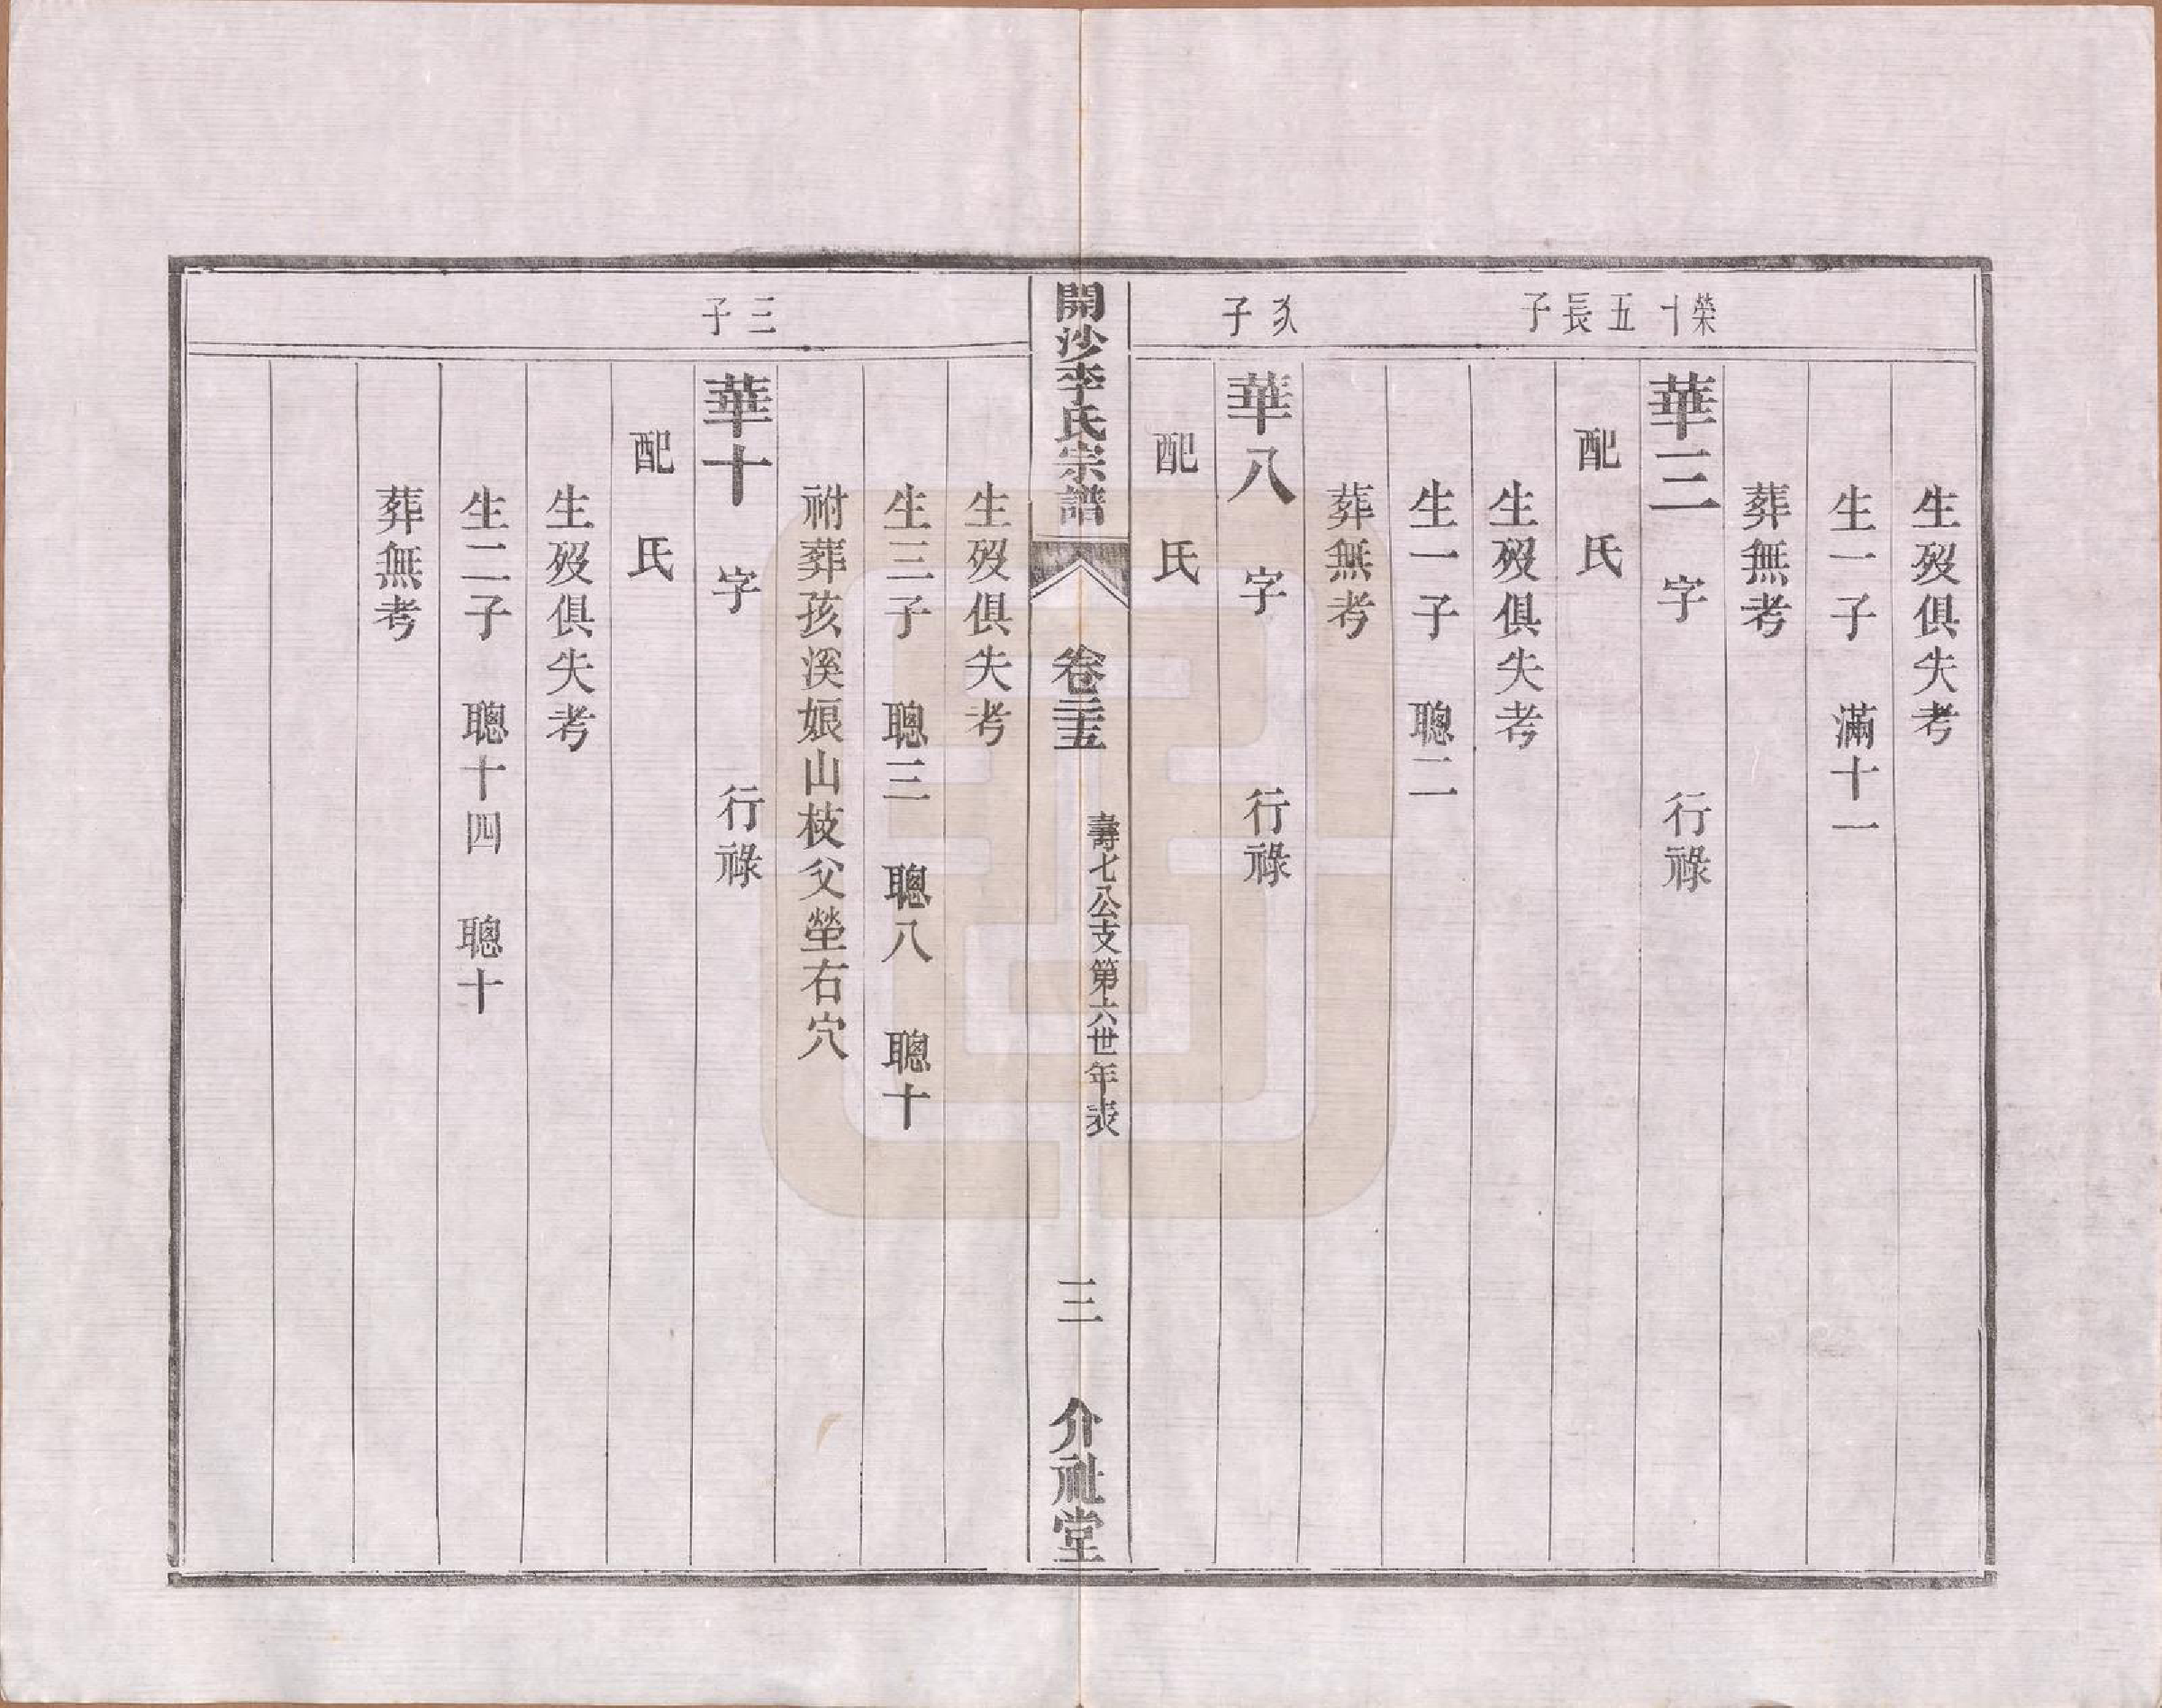 生歿俱失考
生一子　滿十一
葬無考
榮十五長子
華三　字　行祿
配　氏
生歿俱失考
生一子　聰二
葬無考
次子
華八　字　行祿
配　氏
開沙李氏宗譜
卷三五
壽七公支第六世年表
三
介祉堂
生歿俱失考
生三子　聰三　聰八　聰十
祔葬孩溪娘山枝父塋右穴
三子
華十　字　行祿
配　氏
生歿俱失考
生二子　聰十四　聰十
葬無考